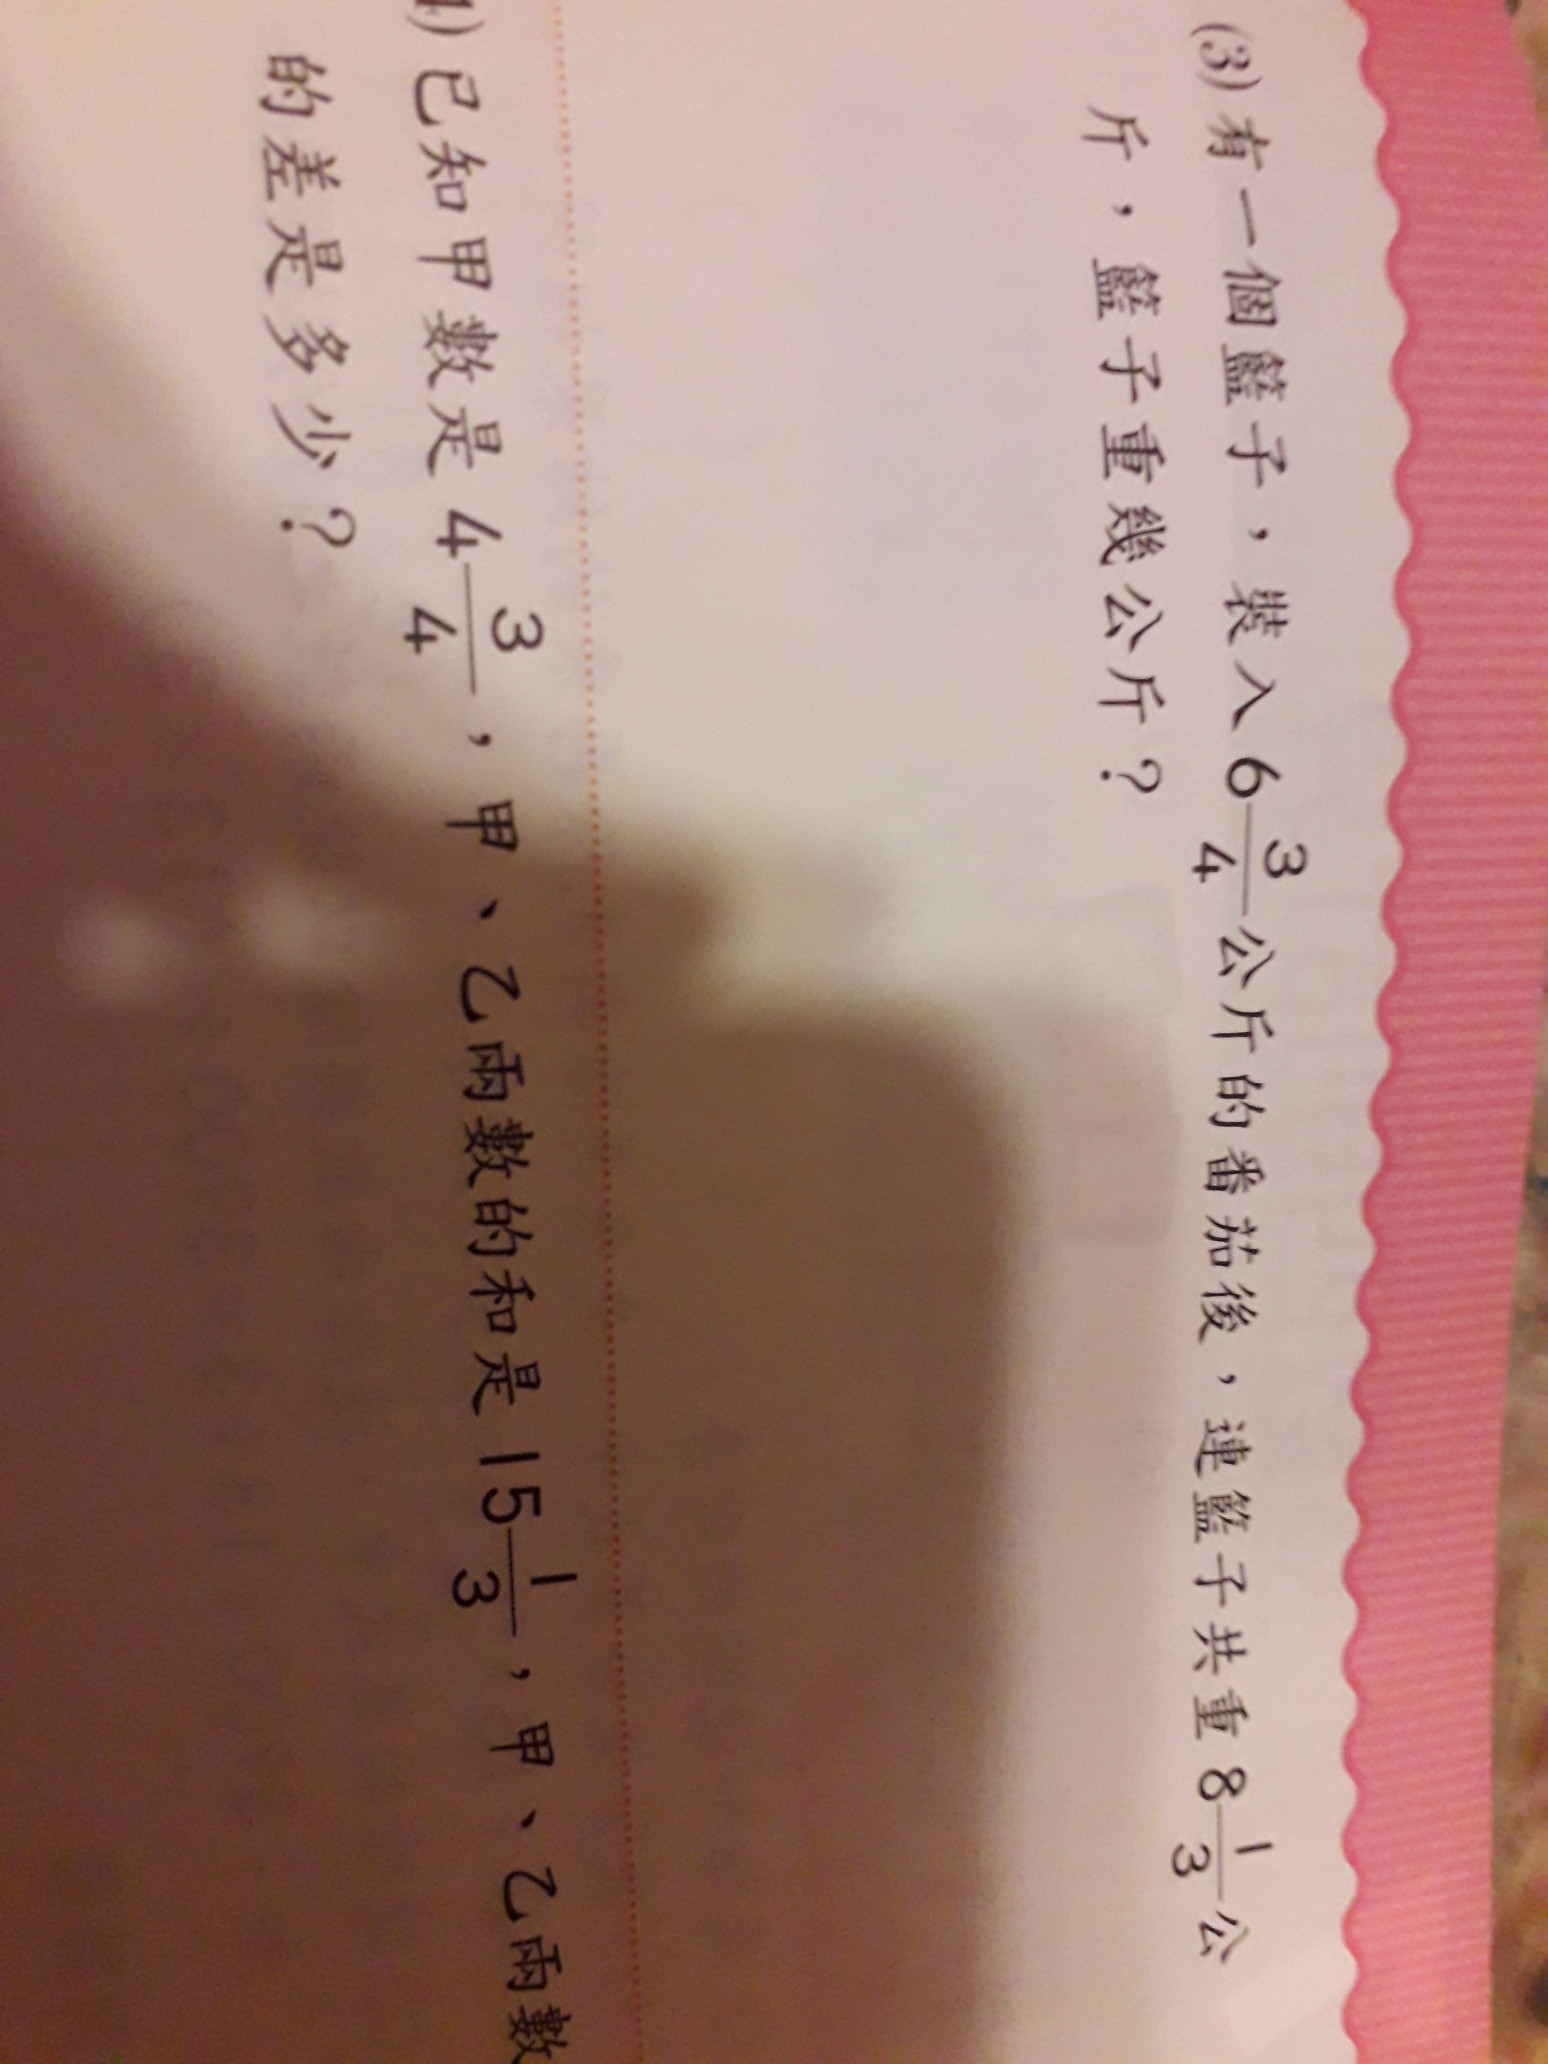 (3) 有一個籃子，裝入 6 3/4 公斤的番茄後，連籃子共重 8 1/3 公
斤，籃子重幾公斤？
4) 已知甲數是 4 3/4，甲、乙兩數的和是 15 1/3，甲、乙兩數
的差是多少？